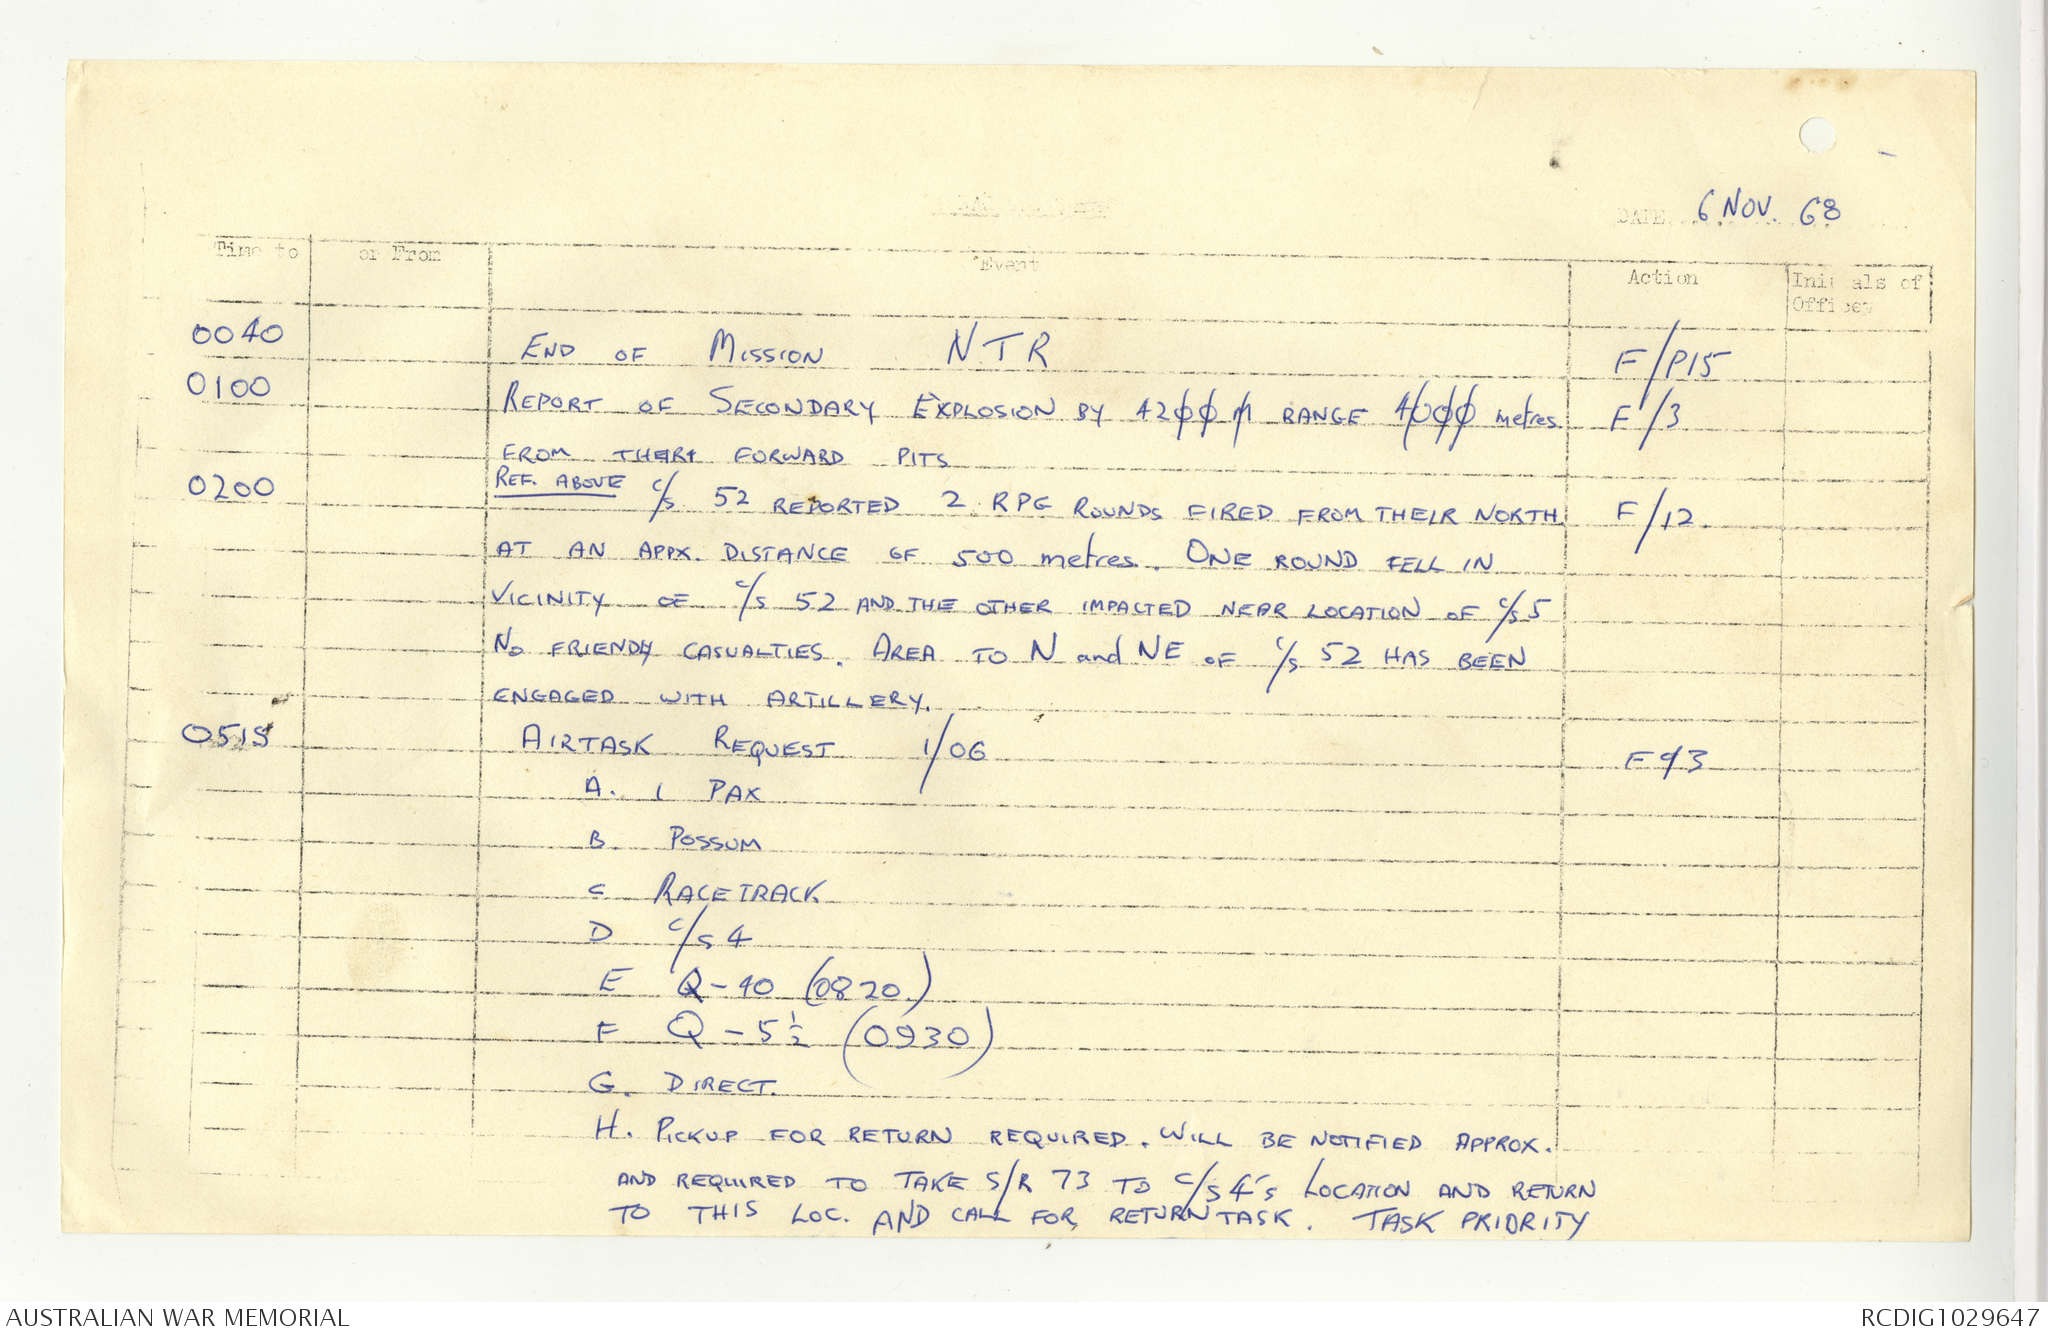 DATE 6 NOV. 68
Time to or From Event Action Initials of Officer
0040 END OF MISSION NTR F/P15
0100 REPORT OF SECONDARY EXPLOSION BY 4200 M RANGE 4000 metres F/3
FROM THEIR FORWARD PITS
0200 REF. ABOVE C/S 52 REPORTED 2 RPG ROUNDS FIRED FROM THEIR NORTH F/12
AT AN APPX. DISTANCE OF 500 metres. ONE ROUND FELL IN
VICINITY OF C/S 52 AND THE OTHER IMPACTED NEAR LOCATION OF C/S 5
NO FRIENDLY CASUALTIES. AREA TO N and NE OF C/S 52 HAS BEEN
ENGAGED WITH ARTILLERY.
0515 AIRTASK REQUEST 1/06 F93
A. 1 PAX
B. POSSUM
C RACETRACK
D C/S 4
E Q-40 (0820)
F Q-5½ (0930)
G. DIRECT.
H. PICKUP FOR RETURN REQUIRED. WILL BE NOTIFIED APPROX.
AND REQUIRED TO TAKE S/R 73 TO C/S 4's LOCATION AND RETURN
TO THIS LOC. AND CALL FOR RETURN TASK. TASK PRIORITY
AUSTRALIAN WAR MEMORIAL RCDIG1029647